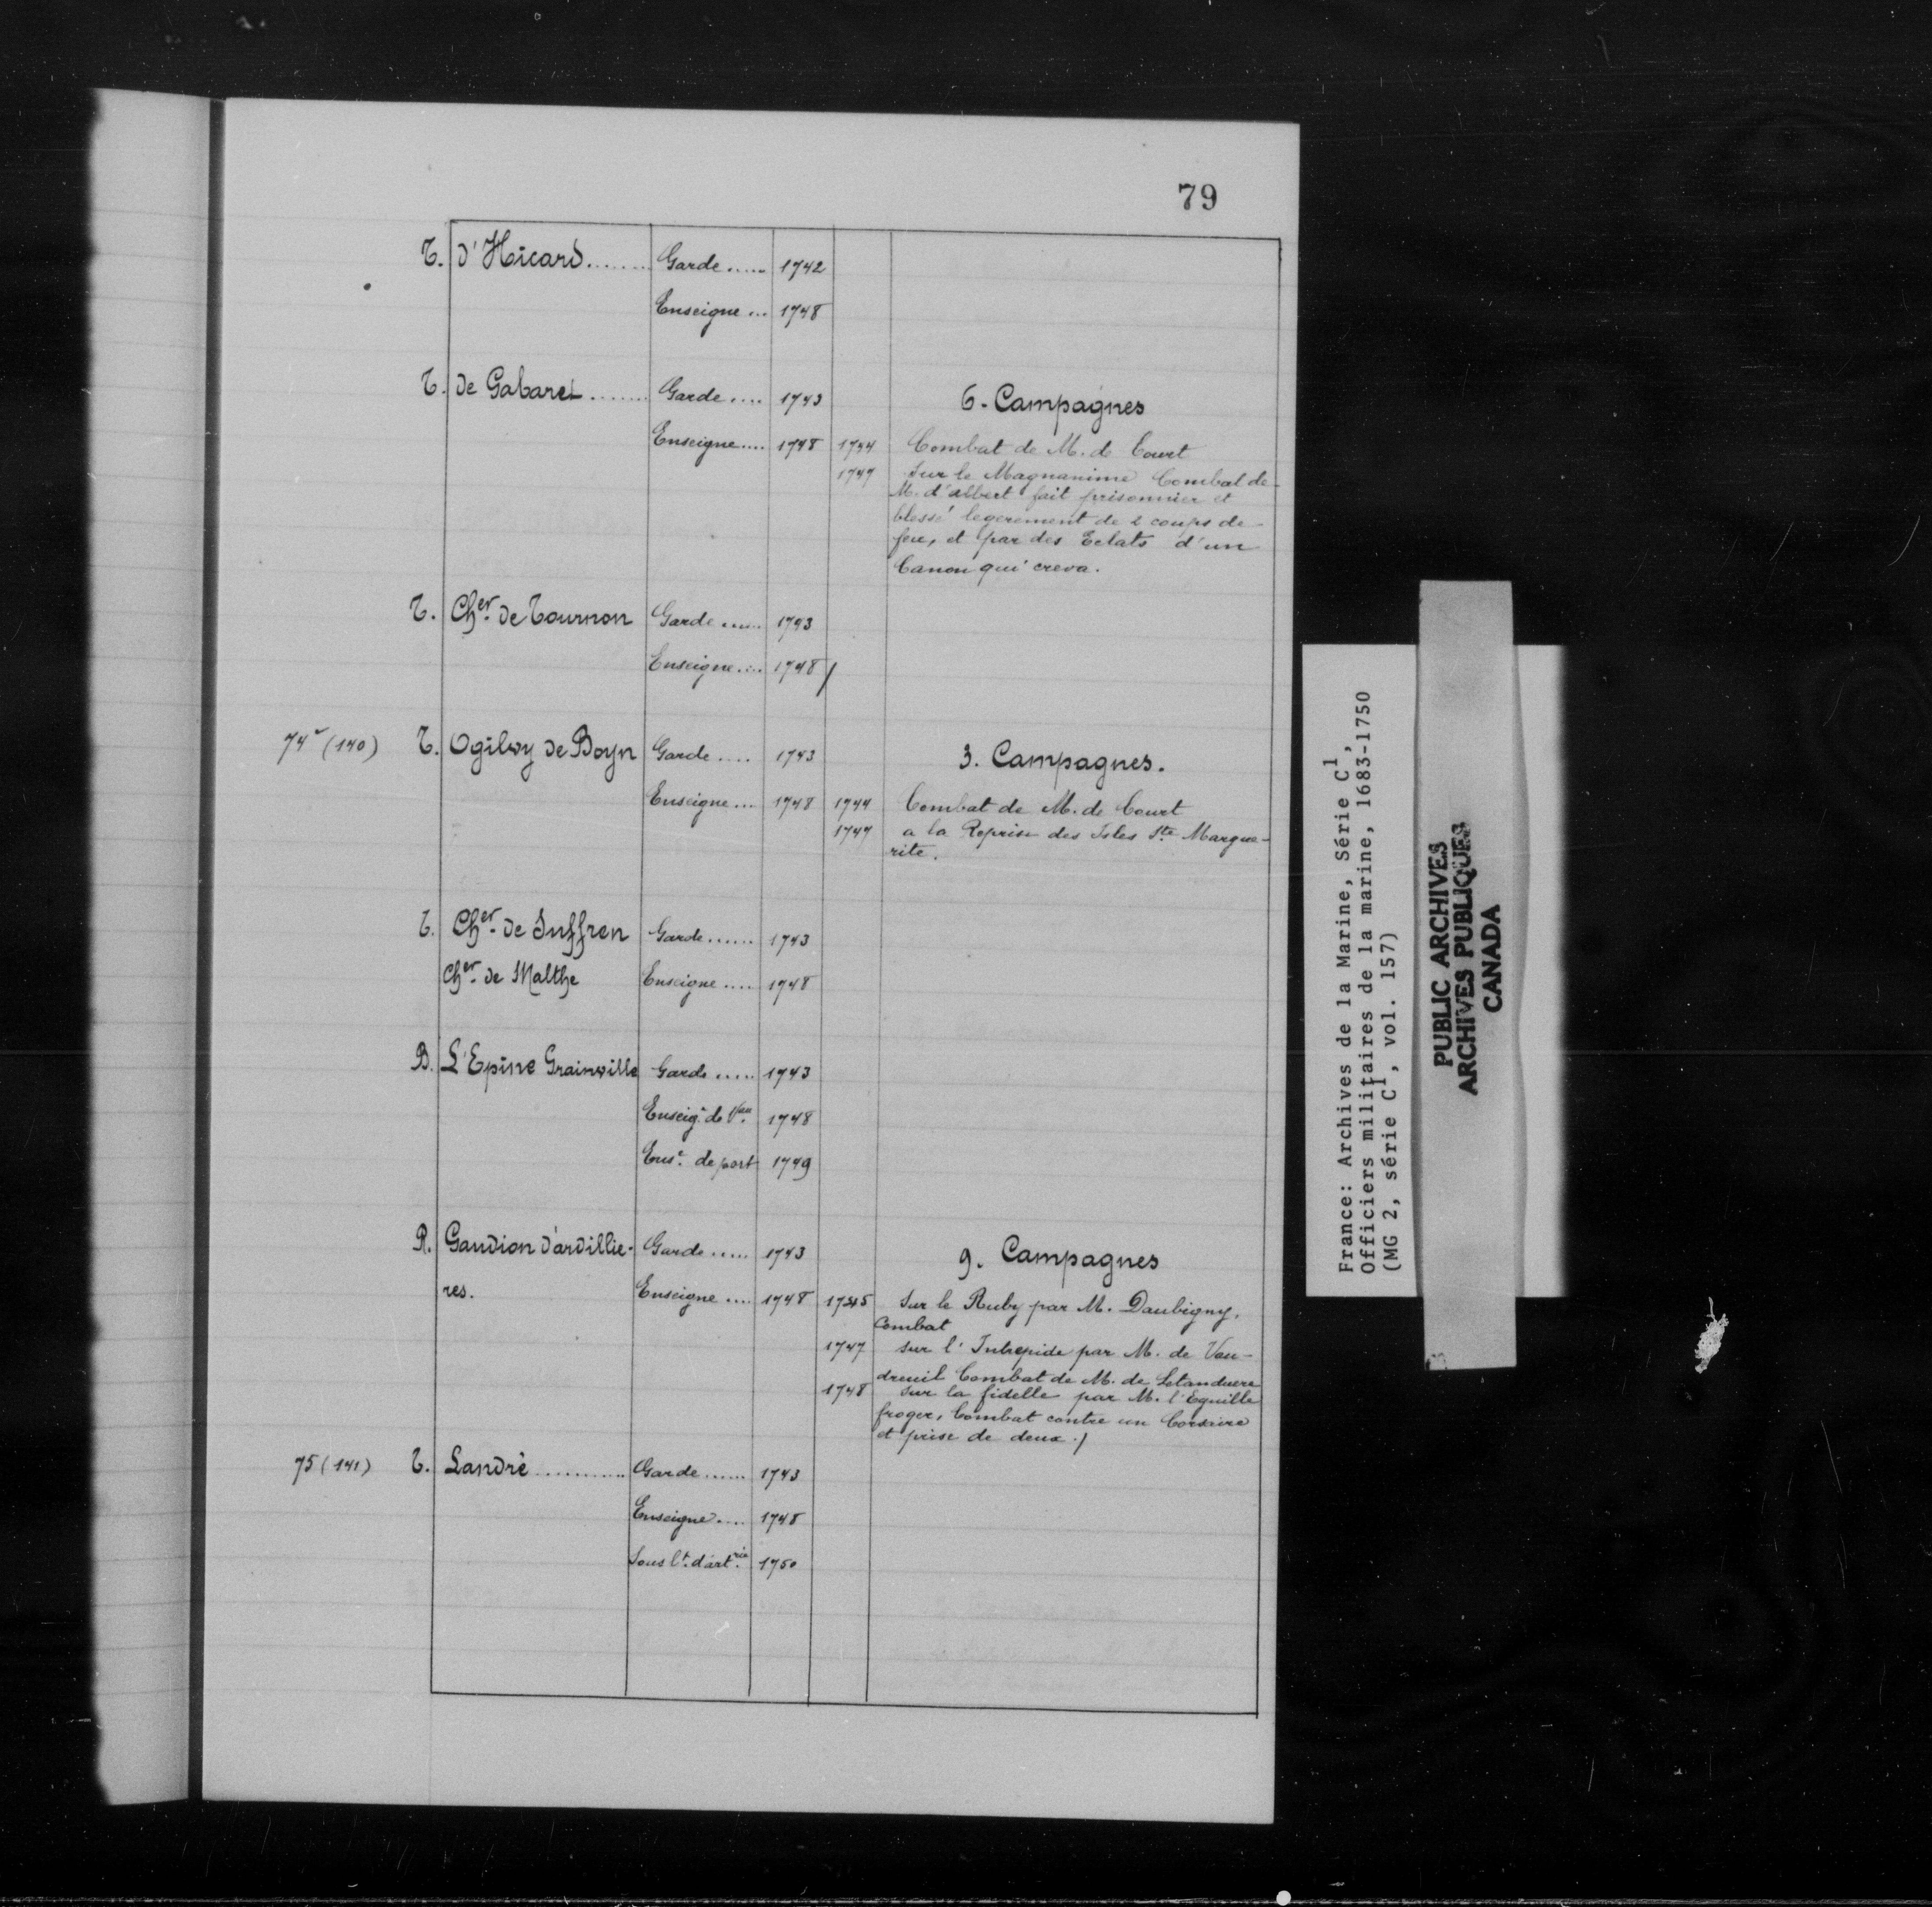 79
T. d'Hicard....... Garde..... 1742
Enseigne... 1748
T. de Gabaret....... Garde.... 1743 6. Campagnes
Enseigne.... 1748 1744 Combat de M. de Court
1747 Sur le Magnanime Combat de
M. d'albert fait prisonnier et
blessé legerement de 2 coups de
feu, et par des Eclats d'un
Canon qui creva.
T. Cher. de Tournon Garde...... 1743
Enseigne.... 1748/
74v (140) T. Ogilvy de Boyn Garde.... 1743 3. Campagnes.
Enseigne... 1748 1744 Combat de M. de Court
1747 a la Reprise des Isles Ste Margue-
rite.
T. Cher. de Suffren Garde...... 1743
Cher. de Malthe Enseigne.... 1748
B. L'Epine Grainville Garde..... 1743
Enseig. de Vau. 1748
Ense. de port 1749
R. Gaudion d'ardillie- Garde..... 1743 9. Campagnes
res. Enseigne.... 1748 1745 Sur le Ruby par M. Daubigny,
Combat
1747 sur l'Intrepide par M. de Vau-
dreuil Combat de M. de Letanduere
1748 sur la fidelle par M. l'Eguille
froger, Combat contre un Corsaire
et prise de deux./
75 (141) T. Landré............ Garde...... 1743
Enseigne.... 1748
Sous lt. d'artrie. 1750
France: Archives de la Marine, Série C1,
Officiers militaires de la marine, 1683-1750
(MG 2, série C1, vol. 157)
PUBLIC ARCHIVES
ARCHIVES PUBLIQUES
CANADA